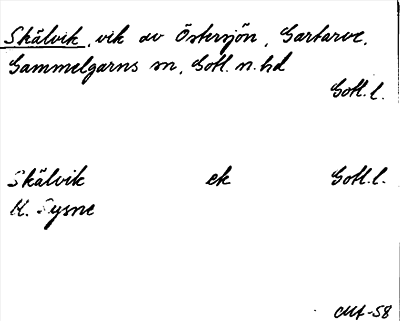 Skälvik, vik av Östersjön, Gartarve,
Gammelgarns sn, Gotl. n. hd
Gotl. l.
Skälvik ek Gotl. l.
K. Fysne
Mf-58